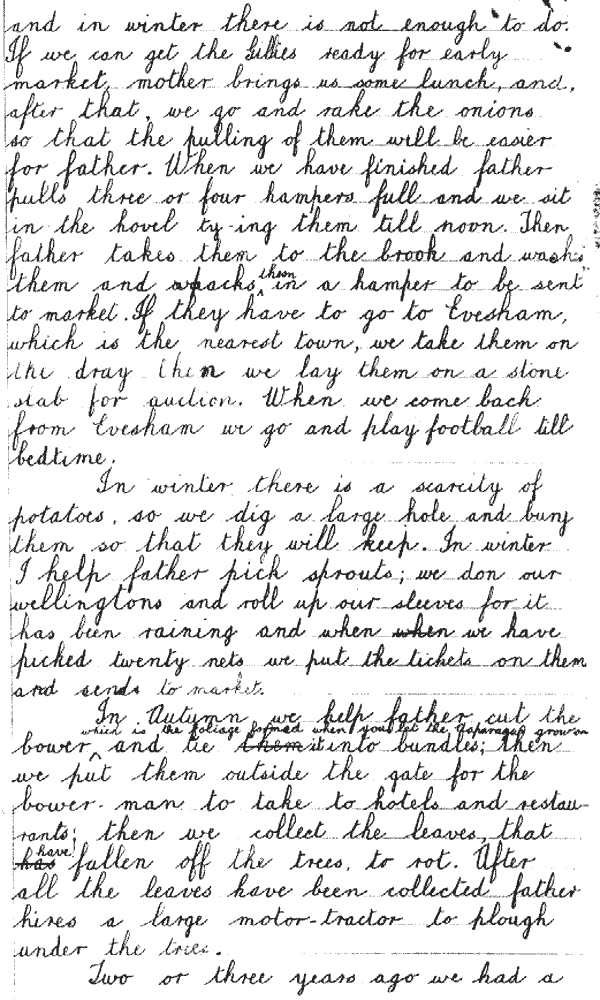 and in winter there is not enough to do.
If we can get the Gillies ready for early
market, mother brings us some lunch, and,
after that, we go and rake the onions
so that the pulling of them will be easier
for father. When we have finished father
pulls three or four hampers full and we sit
in the hovel ty-ing them till noon. Then
father takes them to the brook and washs
them and packs them in a hamper to be sent
to market. If they have to go to Evesham,
which is the nearest town, we take them on
the dray then we lay them on a stone
slab for auction. When we come back
from Evesham we go and play football till
bedtime.
In winter there is a scarcity of
potatoes, so we dig a large hole and bury
them, so that they will keep. In winter
I help father pick sprouts; we don our
wellingtons and roll up our sleeves for it
has been raining and when when we have
picked twenty nets we put the tickets on them
and sends to market.
In Autumn we help father cut the
which is the foliage formed when you let the Asparagus grow on
bower, and tie them it into bundles; then
we put them outside the gate for the
bower-man to take to hotels and restau-
rants; then we collect the leaves, that
has have fallen off the trees, to rot. After
all the leaves have been collected father
hires a large motor-tractor to plough
under the trees.
Two or three years ago we had a